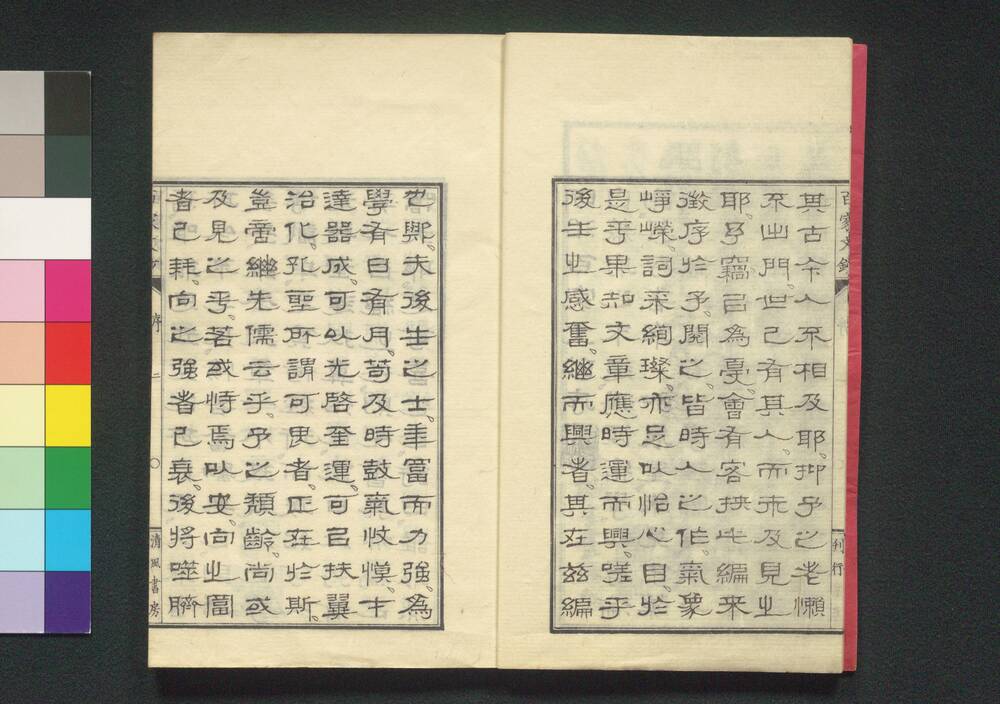 其古今人不相及耶。抑予之老懶
不出門。世已有其人。而未及見之
耶。予竊已為憂。會有客挾此編来
徴序於予。閲之。皆時人之作。氣象
崢嶸。詞采絢璨。亦足以怡心目。於
是乎果知文章應時運而興。嗟乎
後生之感奮。継而興者。其在茲編
也歟。夫後生之士。年冨而力強。為
學有日有月。苟及時鼓氣攸慔。十
達器成。可以光啓奎運。可已扶翼
治化。孔聖所謂可畏者。正在於斯。
豈啻継先儒云乎。予之頽齡。尚或
及見之乎。若或恃焉以安。向之冨
者已耗。向之強者已衰。後将噬臍
百家文鈔
序
二
刊行
清風書房